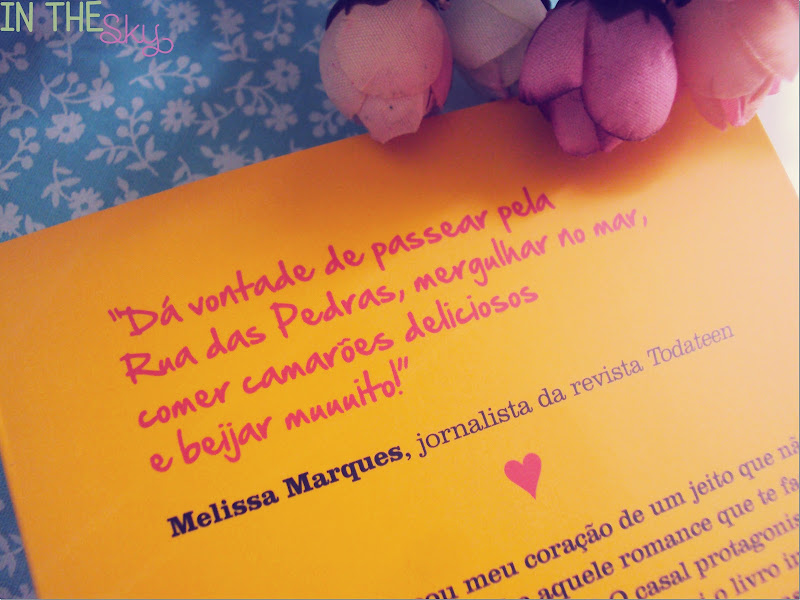 IN THE
Sky
"Dá vontade de passear pela
Rua das Pedras, mergulhar no mar,
comer camarões deliciosos
e beijar muuuito!"
Melissa Marques, jornalista da revista Todateen
meu coração de um jeito que
aquele romance que te
O casal
o livro